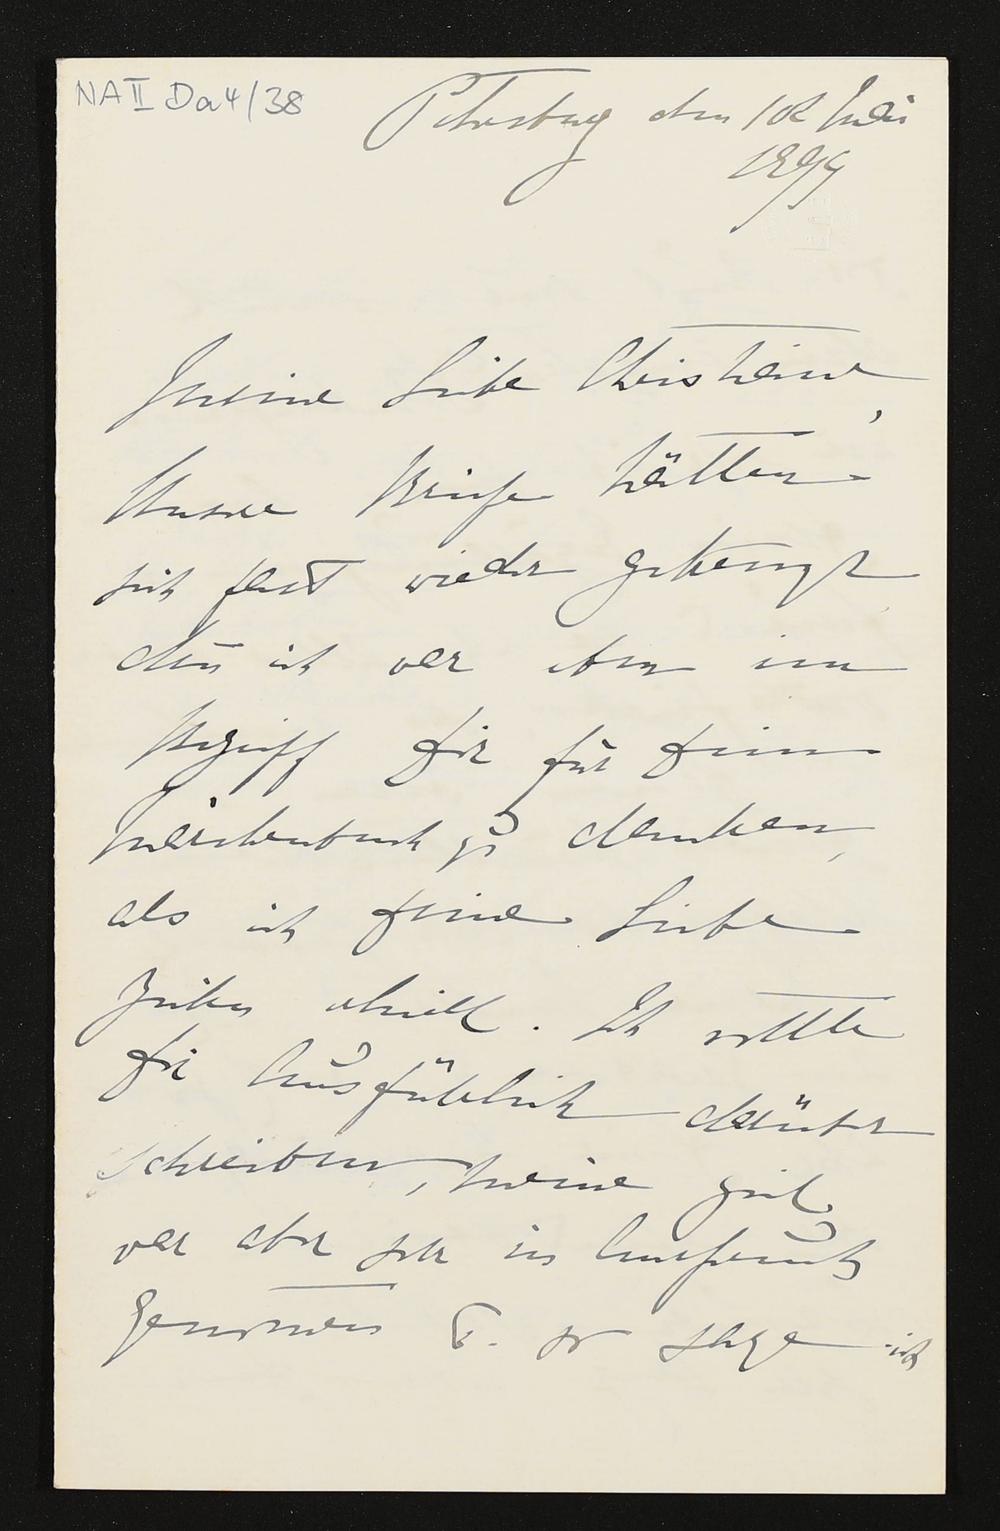 NA II Da 4/38
Petersburg den 18 Mai
1899
Meine Liebe Christiane,
Unsere Briefe hätten
sich fast wieder gekreuzt
den̄ ich war eben im
Begriff Dir für Dein
Märchenbuch zu danken,
als ich Deine Liebe
Zeilen erhielt. Ich wollte
Dir Ausführlich darüber
schreiben, meine Zeit
war aber sehr in Anspruch
genom̄en &. so schob ich